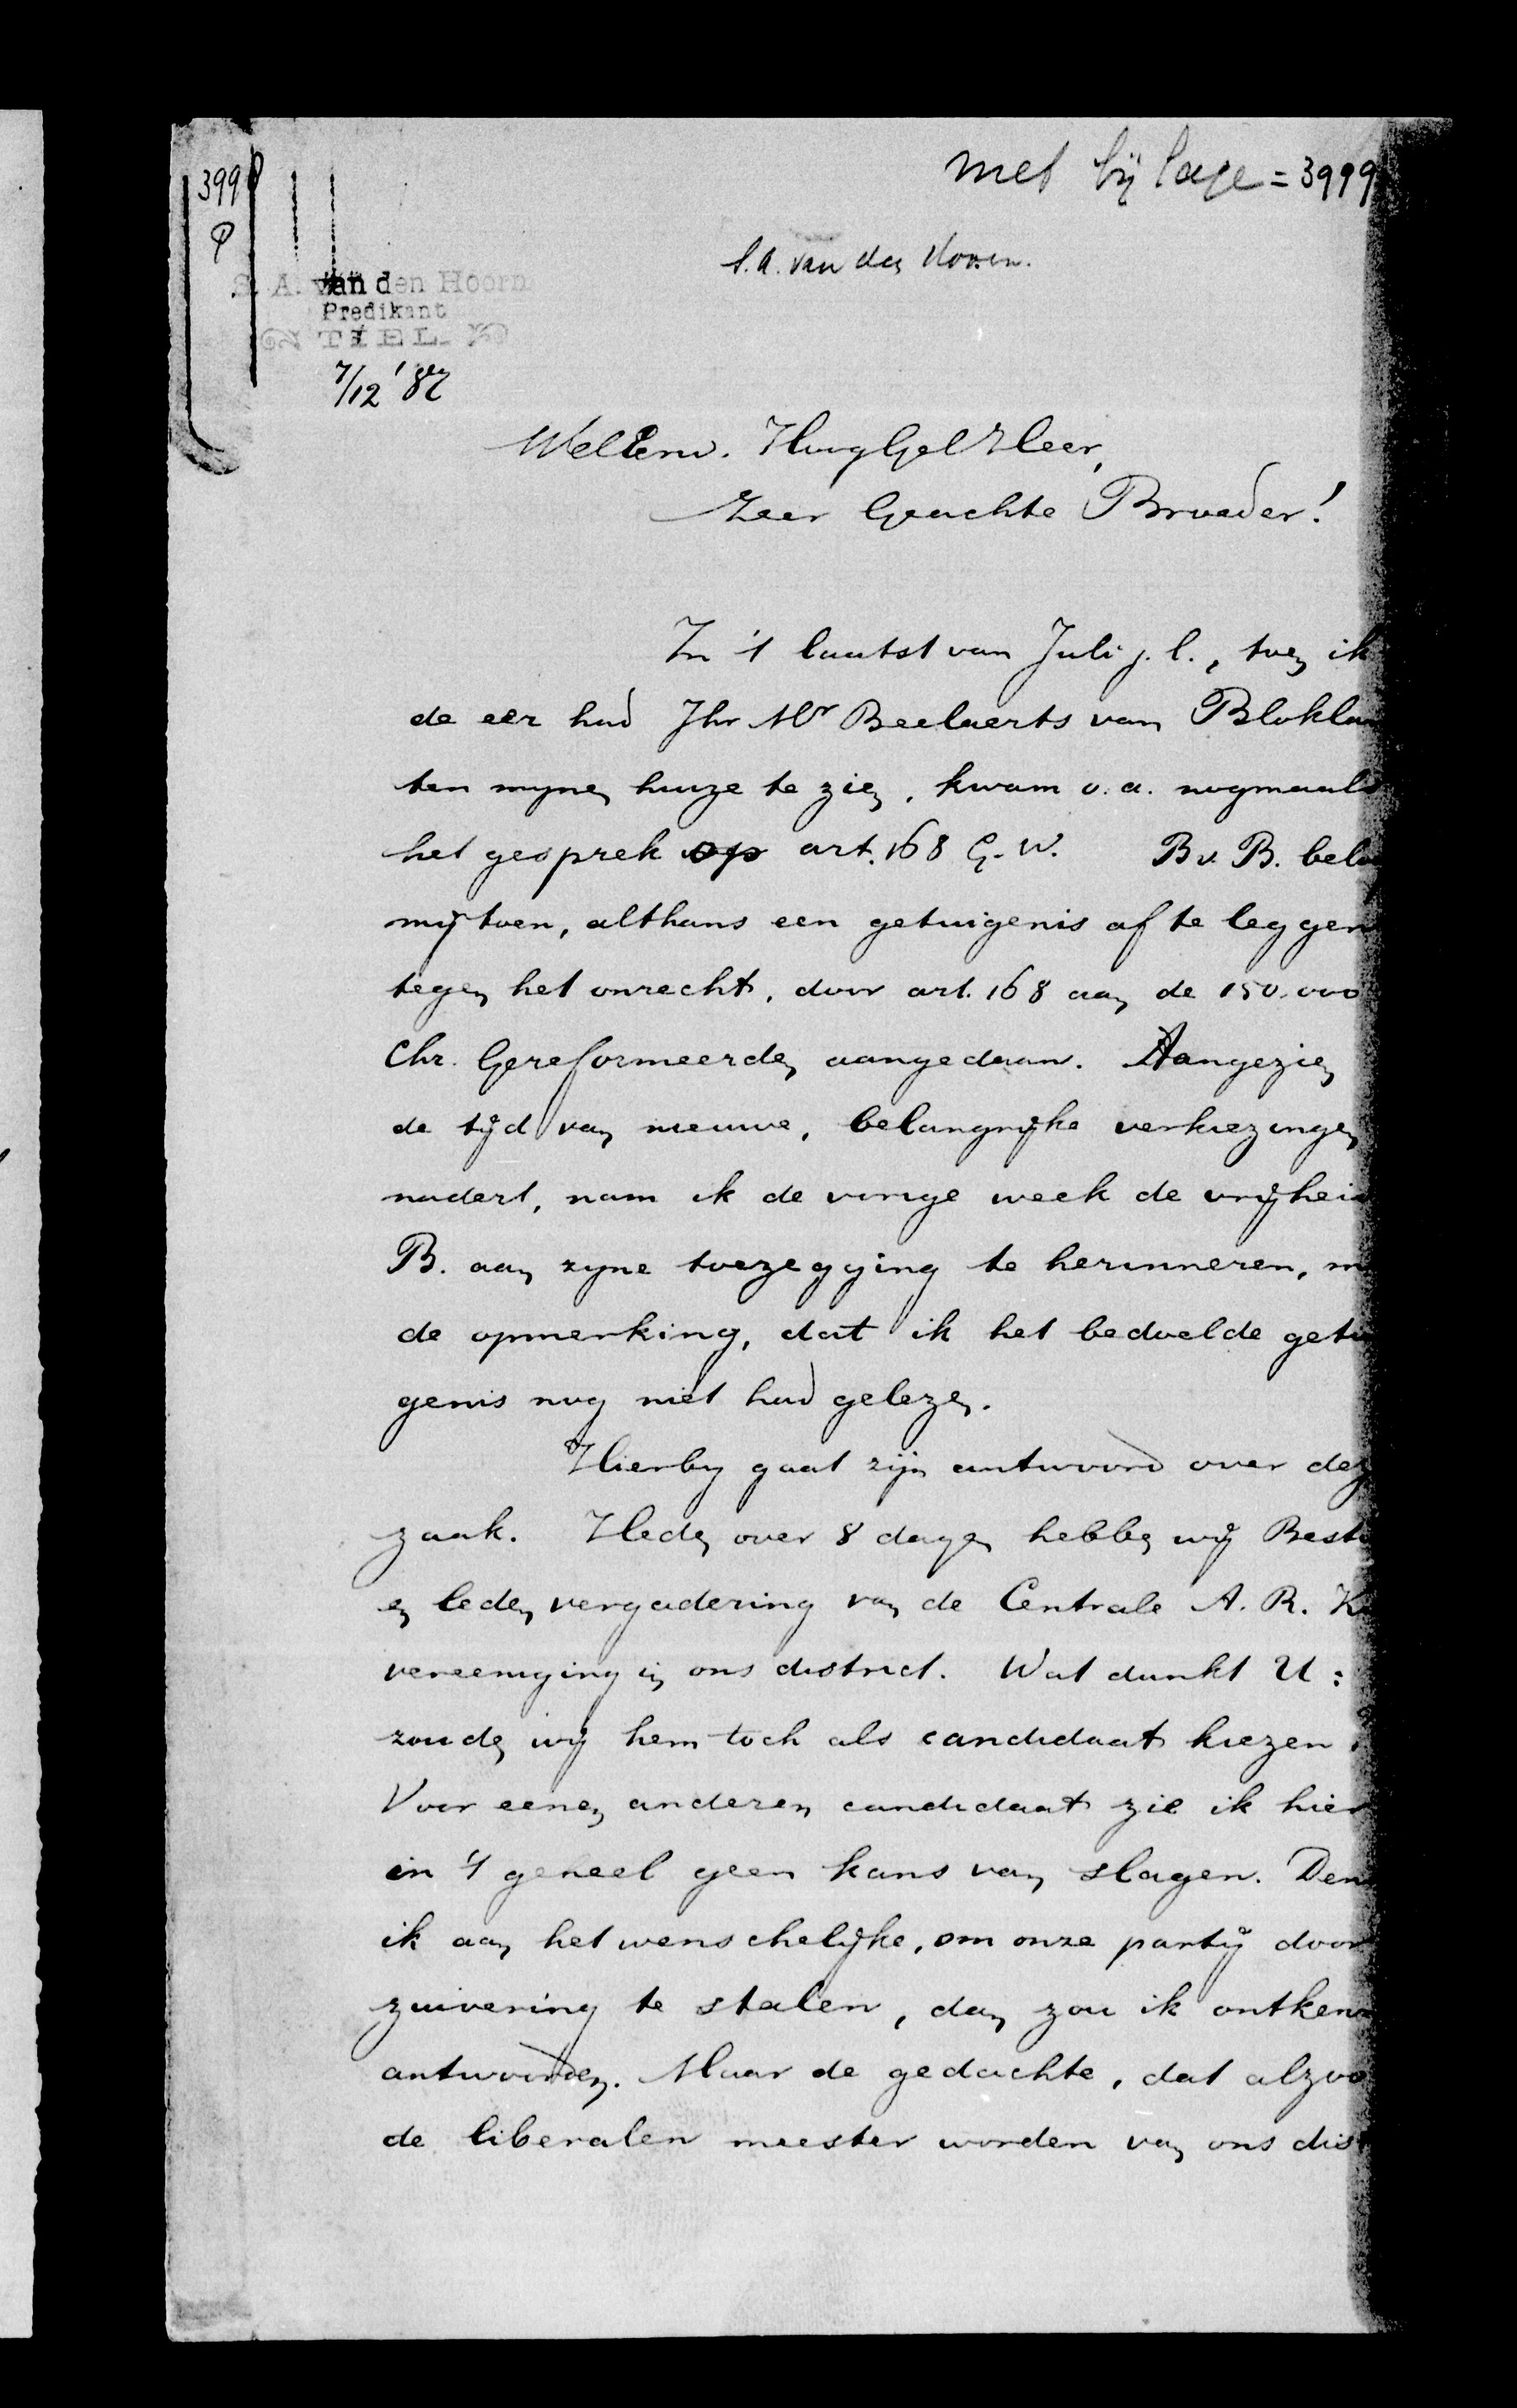 399
met bijlage = 3999
S. A. van den Hoorn.
S. A. van den Hoorn
Predikant
TIEL
7/12 '87
WelEerw. HoogGel Heer,
Zeer Geachte Broeder!
In 't laatst van Juli j.l., toen ik
de eer had Jhr Mr Beelaerts van Bloklan
ten mynen huize te zien, kwam o.a. nogmaals
het gesprek op art. 168 G.W. B v. B. belo
mij toen, althans een getuigenis af te leggen
tegen het onrecht, door art. 168 aan de 150.000
Chr. Gereformeerden aangedaan. Aangezien
de tijd van nieuwe, belangrijke verkiezingen
nadert, nam ik de vorige week de vrijheid
B. aan zyne toezegging te herinneren, m
de opmerking, dat ik het bedoelde getui
genis nog niet had gelezen.
Hierby gaat zijn antwoord over dez
zaak. Heden over 8 dagen hebben wij Bestu
en leden vergadering van de Centrale A. R. K
vereeniging in ons district. Wat dunkt U:
zouden wij hem toch als candidaat kiezen
Voor eenen anderen candidaat zie ik hier
in 't geheel geen kans van slagen. Den
ik aan het wenschelijke, om onze partij door
zuivering te stalen, dan zou ik ontkenn
antwoorden. Maar de gedachte, dat alzoo
de liberalen meester worden van ons dist